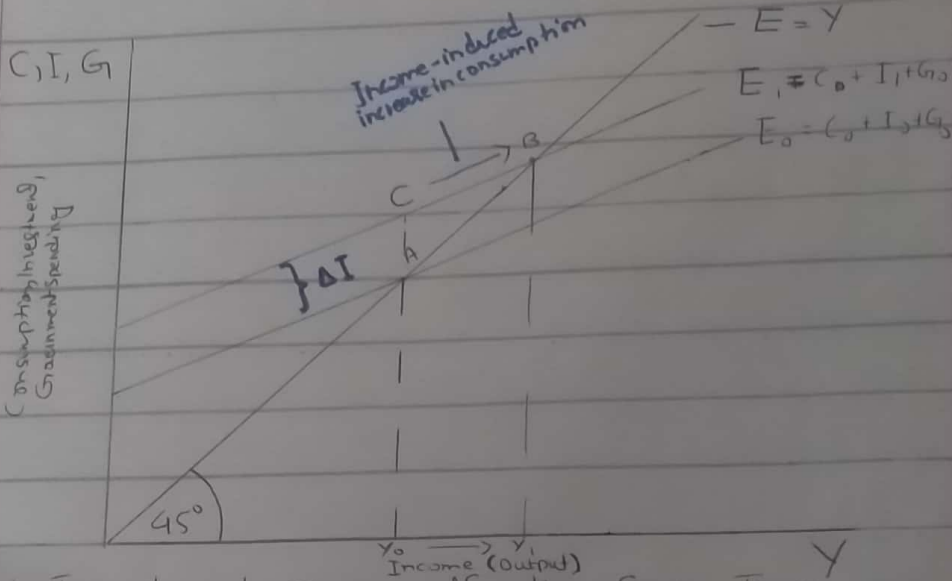 C, I, G
Consumption, Investment,
Government spending
Income-induced
increase in consumption
E = Y
E₁ = C₀ + I₁ + G₀
E₀ = C₀ + I₀ + G₀
B
C
A
} ΔI
45°
Y₀ → Y₁
Income (output)
Y